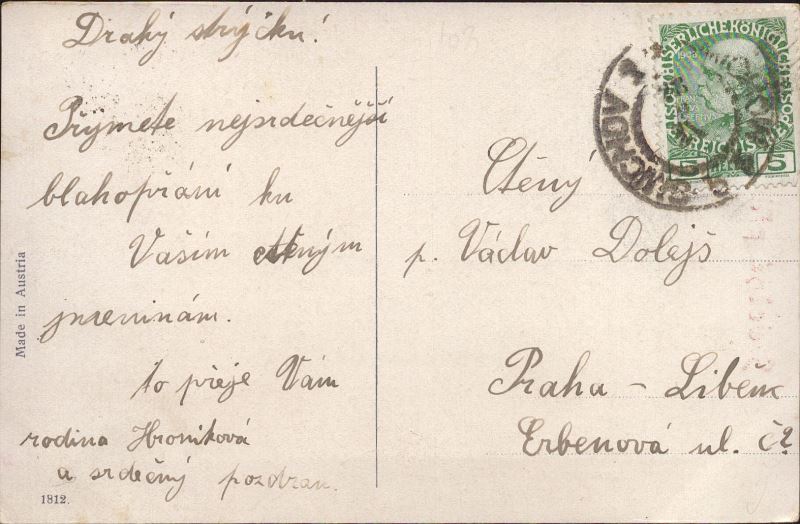 Drahý strýčku!
Přijmete nejsrdečnější
blahopřání ku
Vašim ctěným
jmeninám.
to přeje Vám
rodina Hroníková
a srdečný pozdrav.
Made in Austria
1812.
Ctěný
p. Václav Dolejš
Praha – Libeň
Erbenová ul. č2
5 5